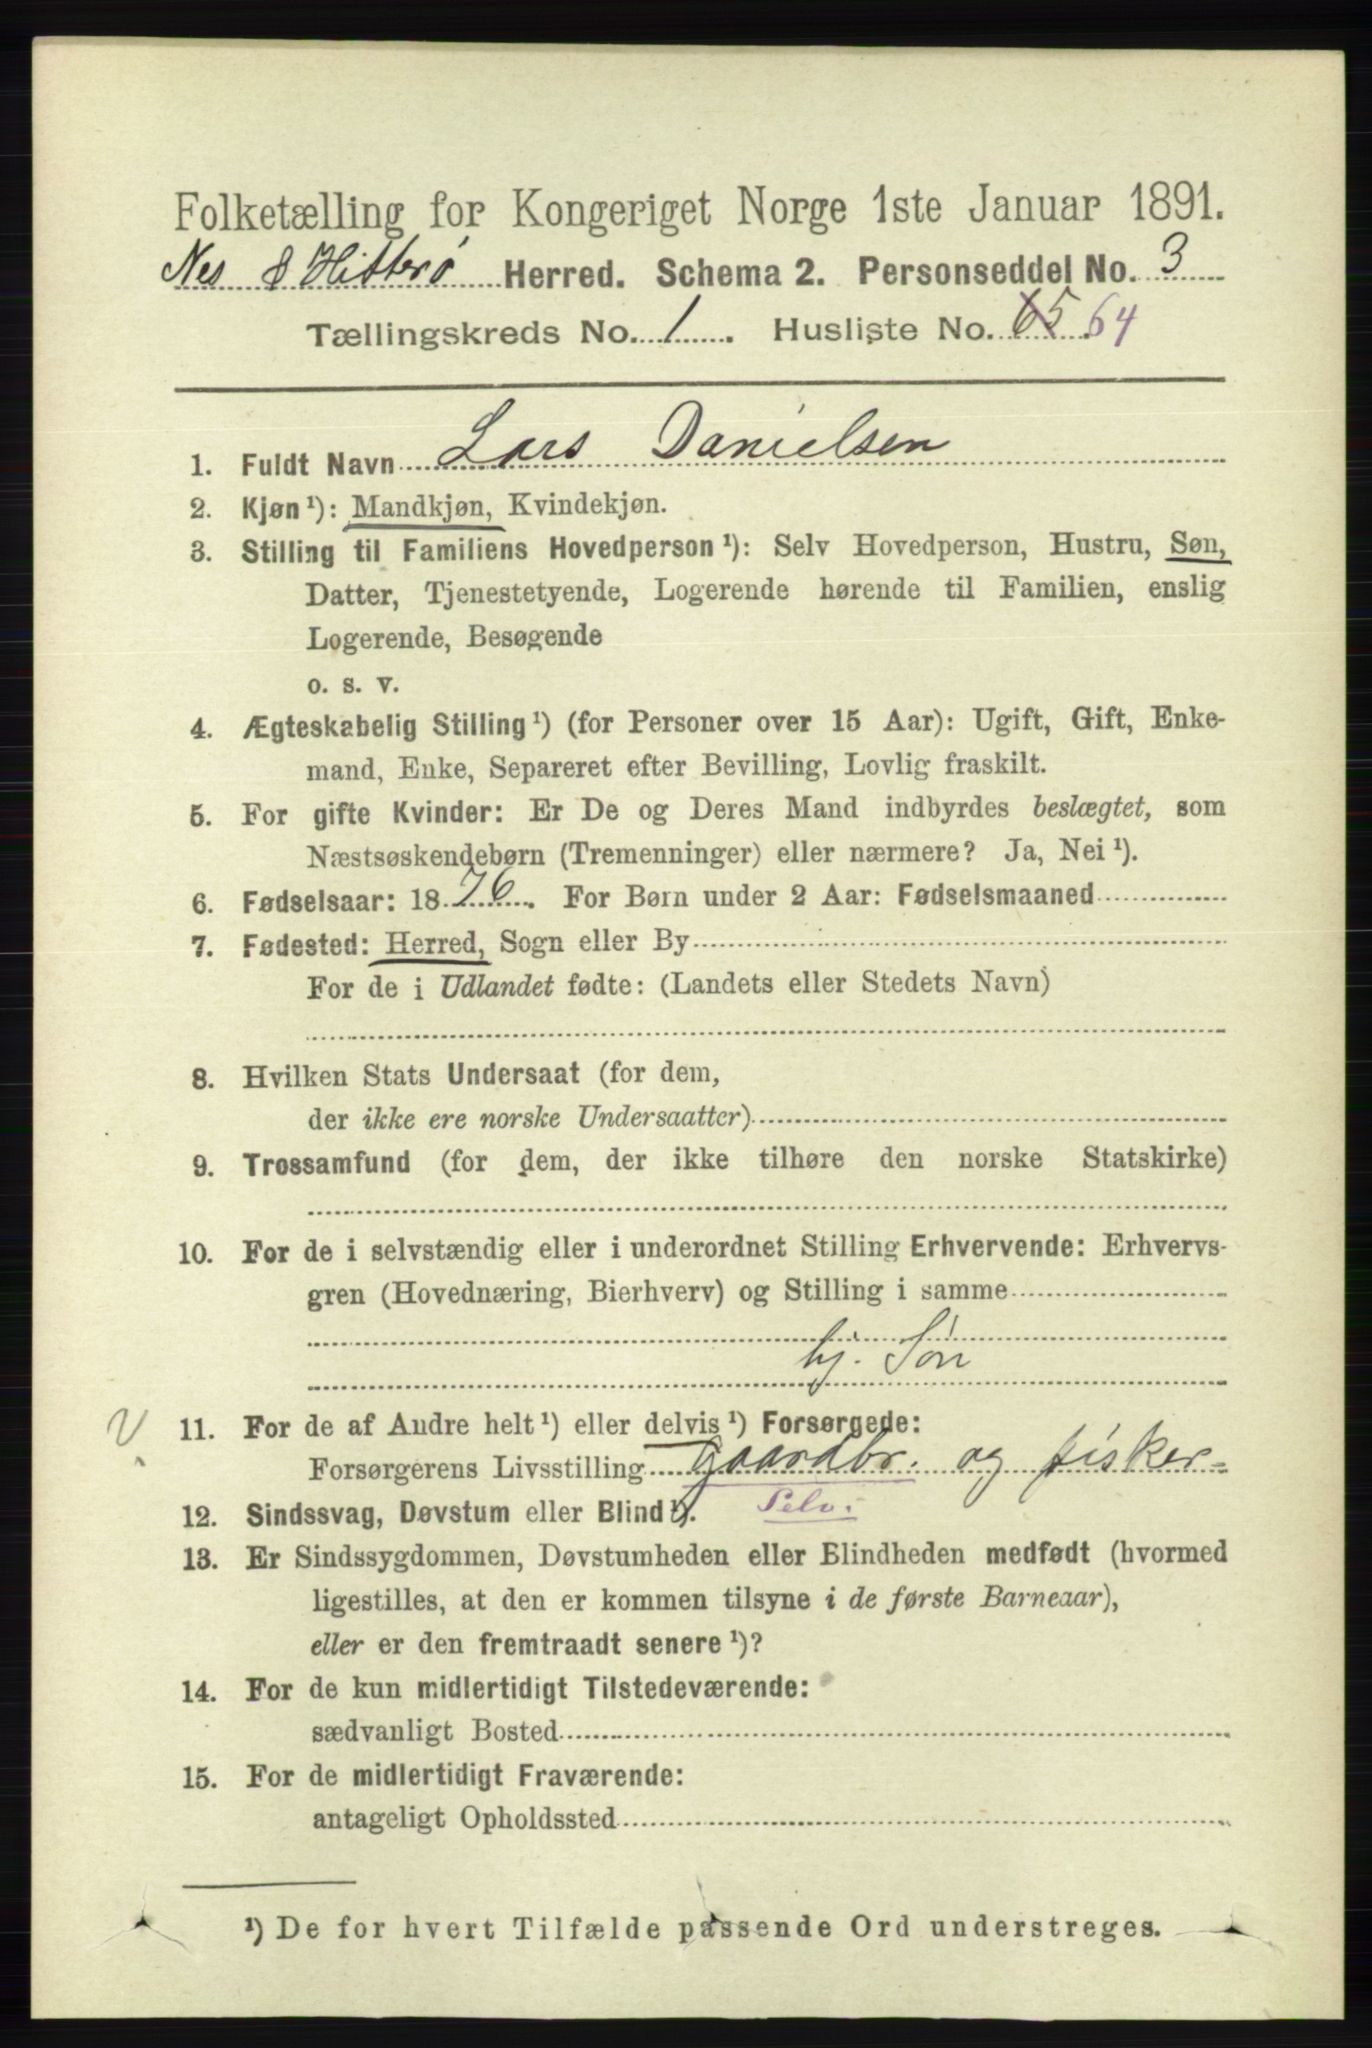 Folketælling for Kongeriget Norge 1ste Januar 1891.
Nes & Hitterø Herred. Schema 2. Personseddel No. 3
Tællingskreds No. 1. Husliste No. 65 64
1. Fuldt Navn Lars Danielsen
2. Kjøn ¹): Mandkjøn, Kvindekjøn.
3. Stilling til Familiens Hovedperson ¹): Selv Hovedperson, Hustru, Søn,
Datter, Tjenestetyende, Logerende hørende til Familien, enslig
Logerende, Besøgende
o. s. v.
4. Ægteskabelig Stilling ¹) (for Personer over 15 Aar): Ugift, Gift, Enke-
mand, Enke, Separeret efter Bevilling, Lovlig fraskilt.
5. For gifte Kvinder: Er De og Deres Mand indbyrdes beslægtet, som
Næstsøskendebørn (Tremenninger) eller nærmere? Ja, Nei ¹).
6. Fødselsaar: 1876. For Børn under 2 Aar: Fødselsmaaned
7. Fødested: Herred, Sogn eller By
For de i Udlandet fødte: (Landets eller Stedets Navn)
8. Hvilken Stats Undersaat (for dem,
der ikke ere norske Undersaatter)
9. Trossamfund (for dem, der ikke tilhøre den norske Statskirke)
10. For de i selvstændig eller i underordnet Stilling Erhvervende: Erhvervs-
gren (Hovednæring, Bierhverv) og Stilling i samme
hj. Søn
11. For de af Andre helt ¹) eller delvis ¹) Forsørgede:
Forsørgerens Livsstilling gaardbr. og fisker
Selv.
12. Sindssvag, Døvstum eller Blind ¹).
13. Er Sindssygdommen, Døvstumheden eller Blindheden medfødt (hvormed
ligestilles, at den er kommen tilsyne i de første Barneaar),
eller er den fremtraadt senere ¹)?
14. For de kun midlertidigt Tilstedeværende:
sædvanligt Bosted
15. For de midlertidigt Fraværende:
antageligt Opholdssted
¹) De for hvert Tilfælde passende Ord understreges.